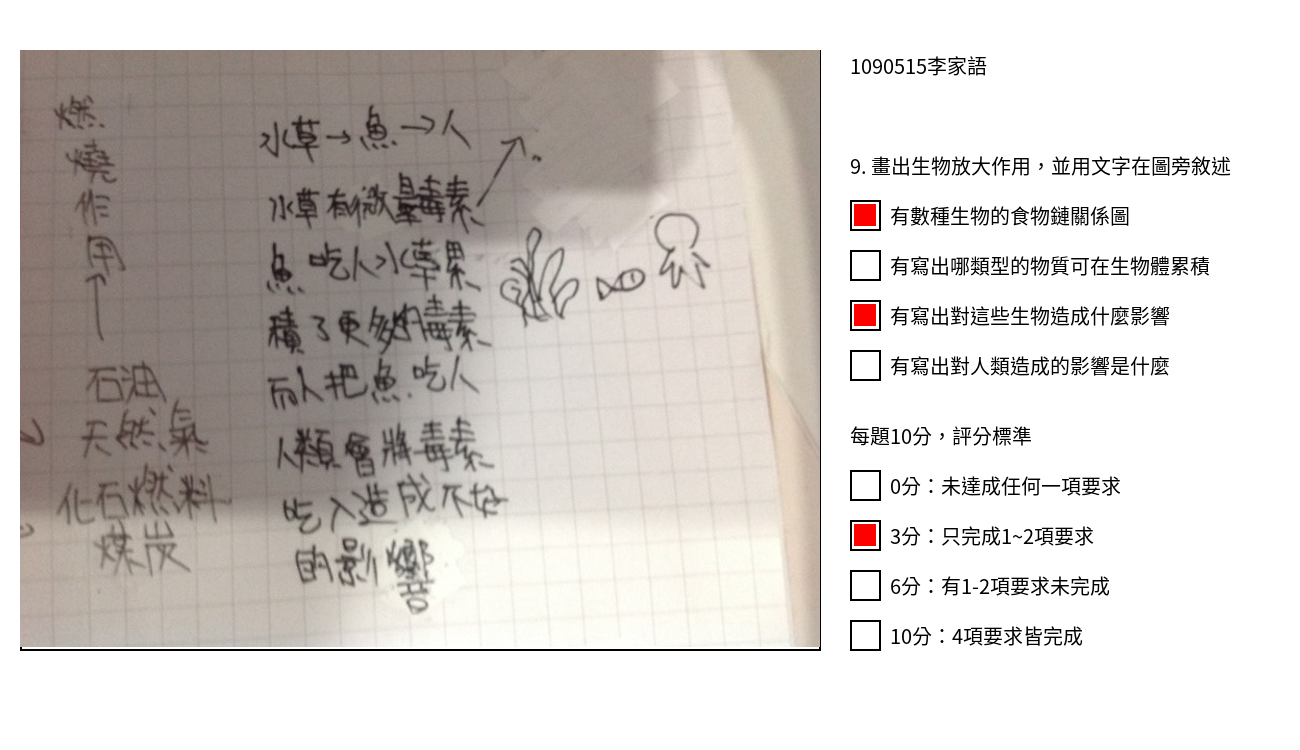 燃
燒
作
用
石油
天然氣
化石燃料
煤炭
水草→魚→人
水草有微量毒素
魚吃入水草累
積了更多的毒素
而人把魚吃入
人類會將毒素
吃入造成不好
的影響
1090515李家語
9. 畫出生物放大作用，並用文字在圖旁敘述
有數種生物的食物鏈關係圖
有寫出哪類型的物質可在生物體累積
有寫出對這些生物造成什麼影響
有寫出對人類造成的影響是什麼
每題10分，評分標準
0分：未達成任何一項要求
3分：只完成1~2項要求
6分：有1-2項要求未完成
10分：4項要求皆完成